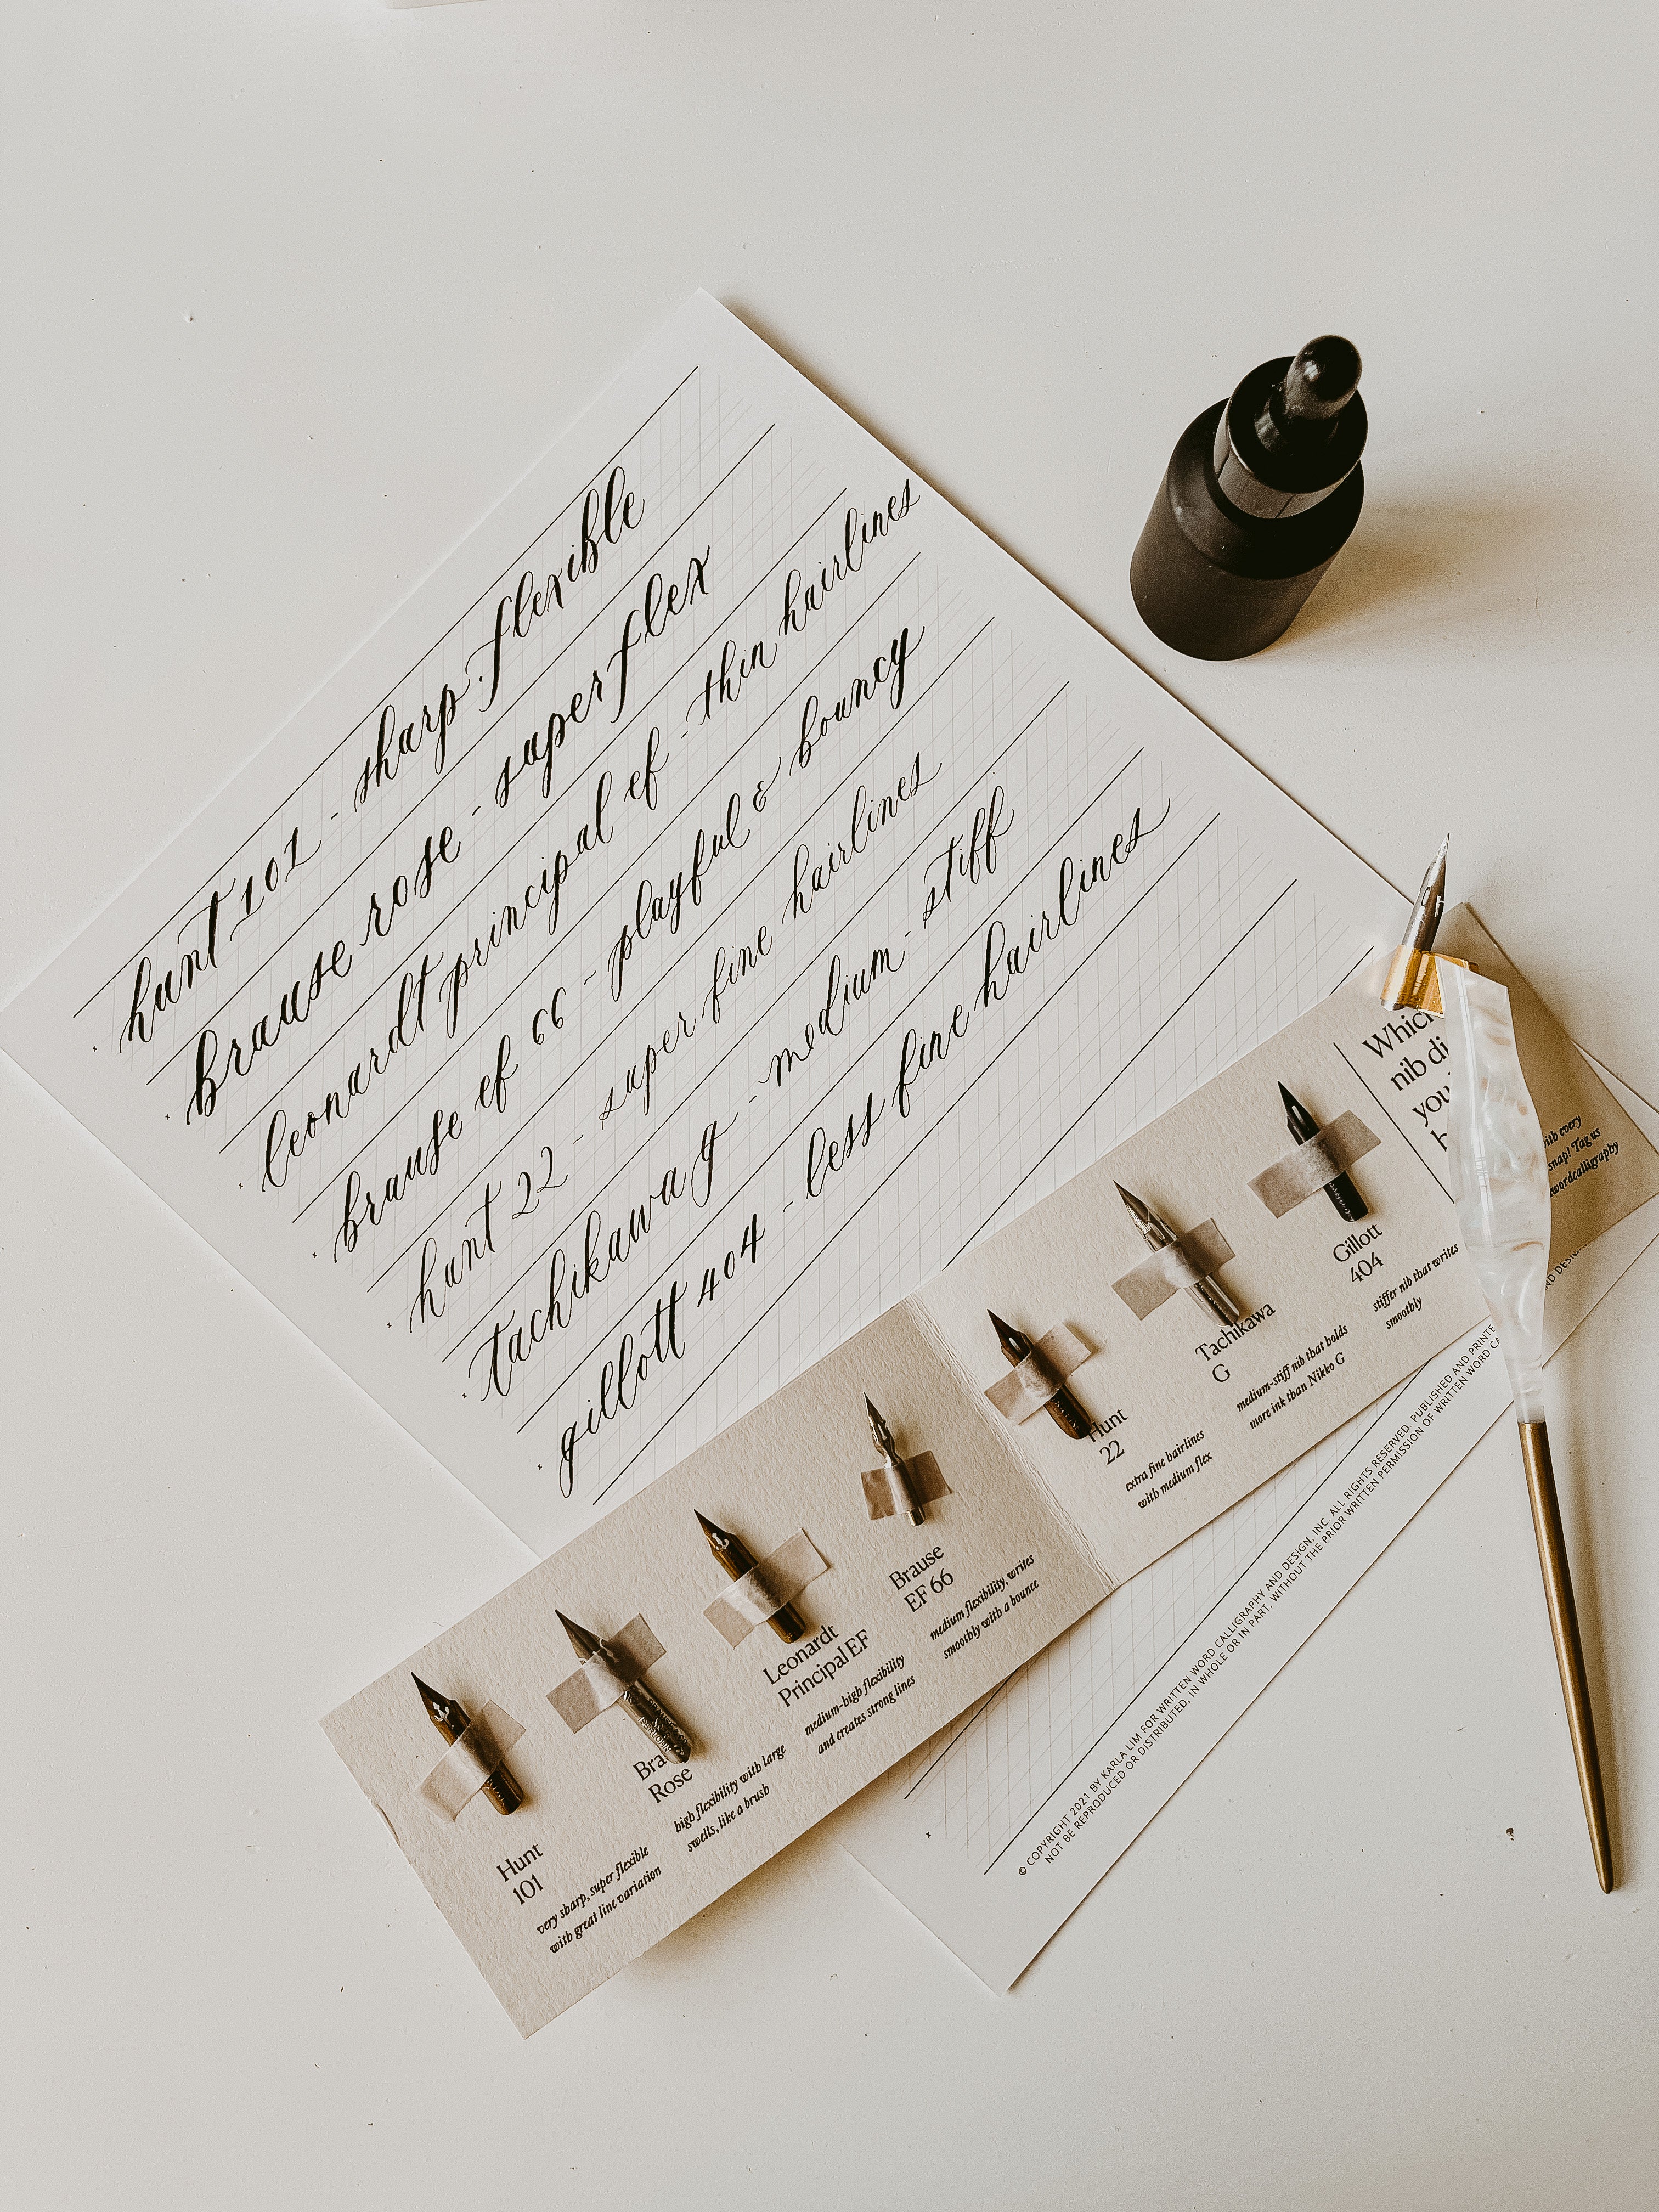 hunt 101 - sharp. flexible
brause rose - super flex
leonardt principal ef - thin hairlines
brause ef 66 - playful & bouncy
hunt 22 - super fine hairlines
tachikawa g - medium - stiff
gillott 404 - less fine hairlines
Hunt
101
very sharp, super flexible
with great line variation
Bra
Rose
high flexibility with large
swells, like a brush
Leonardt
Principal EF
medium-high flexibility
and creates strong lines
Brause
EF 66
medium flexibility, writes
smoothly with a bounce
Hunt
22
extra fine hairlines
with medium flex
Tachikawa
G
medium-stiff nib that holds
more ink than Nikko G
Gillott
404
stiffer nib that writes
smoothly
Which
nib di
you
with every
snap! Tag us
wordcalligraphy
© COPYRIGHT 2021 BY KARLA LIM FOR WRITTEN WORD CALLIGRAPHY AND DESIGN, INC. ALL RIGHTS RESERVED. PUBLISHED AND PRINTE
NOT BE REPRODUCED OR DISTRIBUTED, IN WHOLE OR IN PART, WITHOUT THE PRIOR WRITTEN PERMISSION OF WRITTEN WORD CA
ND DESIG